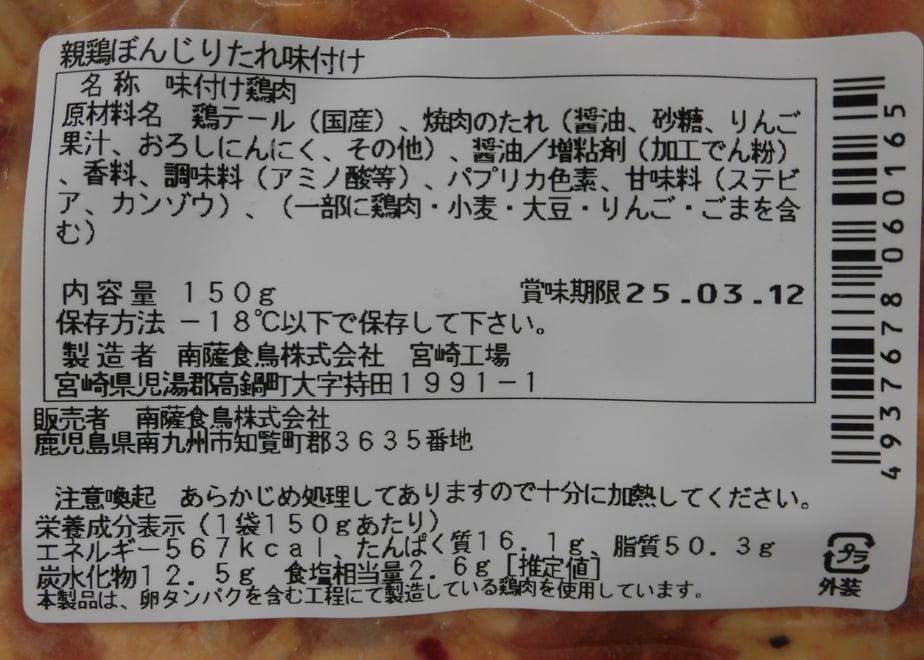 親鶏ぼんじりたれ味付け
名称 味付け鶏肉
原材料名 鶏テール（国産）、焼肉のたれ（醤油、砂糖、りんご
果汁、おろしにんにく、その他）、醤油／増粘剤（加工でん粉）
、香料、調味料（アミノ酸等）、パプリカ色素、甘味料（ステビ
ア、カンゾウ）、（一部に鶏肉・小麦・大豆・りんご・ごまを含
む）
内容量 １５０ｇ 賞味期限25.03.12
保存方法 －１８℃以下で保存して下さい。
製造者 南薩食鳥株式会社 宮崎工場
宮崎県児湯郡高鍋町大字持田１９９１－１
販売者 南薩食鳥株式会社
鹿児島県南九州市知覧町郡３６３５番地
注意喚起 あらかじめ処理してありますので十分に加熱してください。
栄養成分表示（１袋１５０ｇあたり）
エネルギー５６７ｋｃａｌ、たんぱく質１６．１ｇ、脂質５０．３ｇ
炭水化物１２．５ｇ 食塩相当量２．６ｇ［推定値］
本製品は、卵タンパクを含む工程にて製造している鶏肉を使用しています。
4937678060165
プラ
外装